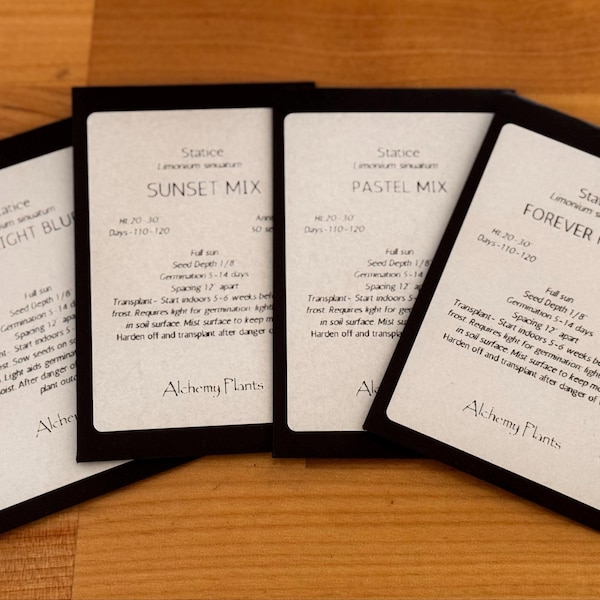 Statice
Limonium sinuatum
IGHT BLUE
Full sun
Seed Depth 1/8"
Germination 5-14 d
Spacing 12" apart
t- Start indoors 5-
est. Sow seeds on so
Light aids germina
oist. After danger of
plant outd
Alchem
Statice
Limonium sinuatum
SUNSET MIX
Ht. 20-30"
Ann
Days-110-120
50 se
Full sun
Seed Depth 1/8"
Germination 5-14 days
Spacing 12" apart
Transplant- Start indoors 5-6 weeks befo
frost. Requires light for germination: light
in soil surface. Mist surface to keep m
Harden off and transplant after danger o
Alchemy Plants
Statice
Limonium sinuatum
PASTEL MIX
Ht. 20-30"
Days-110-120
Full sun
Seed Depth 1/8"
Germination 5-14 days
Spacing 12" apart
Transplant- Start indoors 5-6 w
frost. Requires light for germina
in soil surface. Mist surface t
Harden off and transplant afte
Alchemy P
Stat
Limonium sinu
FOREVER
Ht. 20-30"
Days-110-120
Full sun
Seed Depth 1/8"
Germination 5-14 days
Spacing 12" apart
Transplant- Start indoors 5-6 weeks be
frost. Requires light for germination: ligh
in soil surface. Mist surface to keep mo
Harden off and transplant after danger of
Alchemy Plants